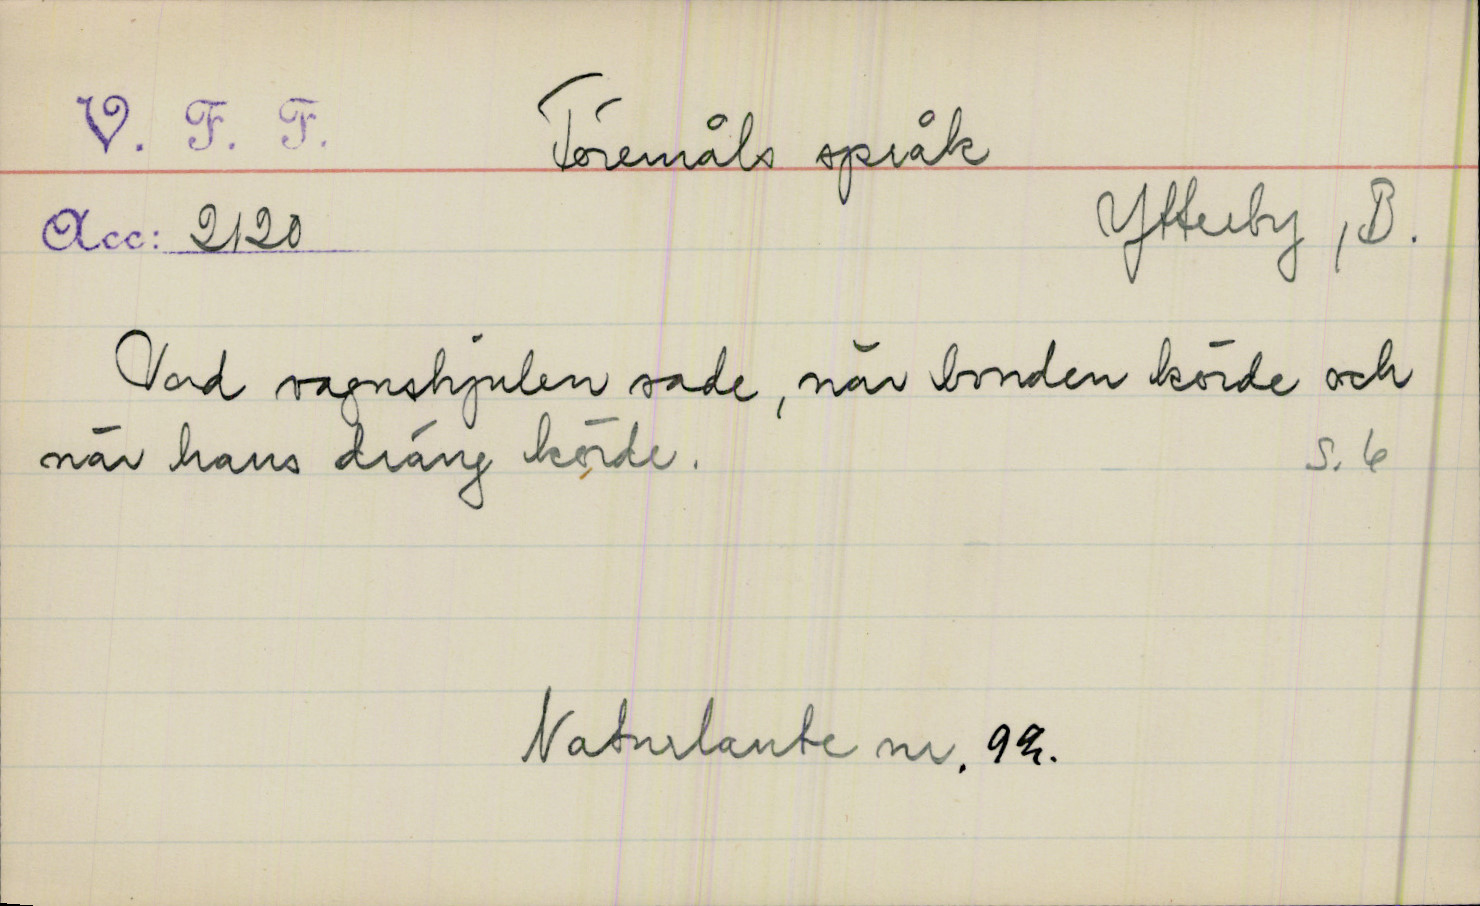 V. F. F.
Föremåls språk
Acc: 2120
Ytterby, B.
Vad vagnshjulen sade, när bonden körde och
när hans dräng körde.
s. 6
Naturlaute nr.